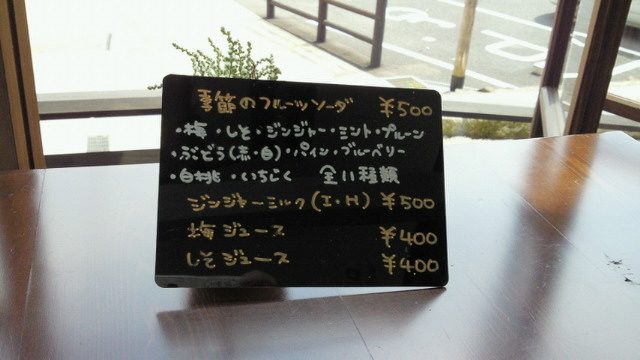 季節のフルーツソーダ ¥500
・梅・しそ・ジンジャー・ミント・プルーン
・ぶどう(赤・白)・パイン・ブルーベリー
・白桃・いちじく 全11種類
ジンジャーミルク(I・H) ¥500
梅ジュース ¥400
しそジュース ¥400